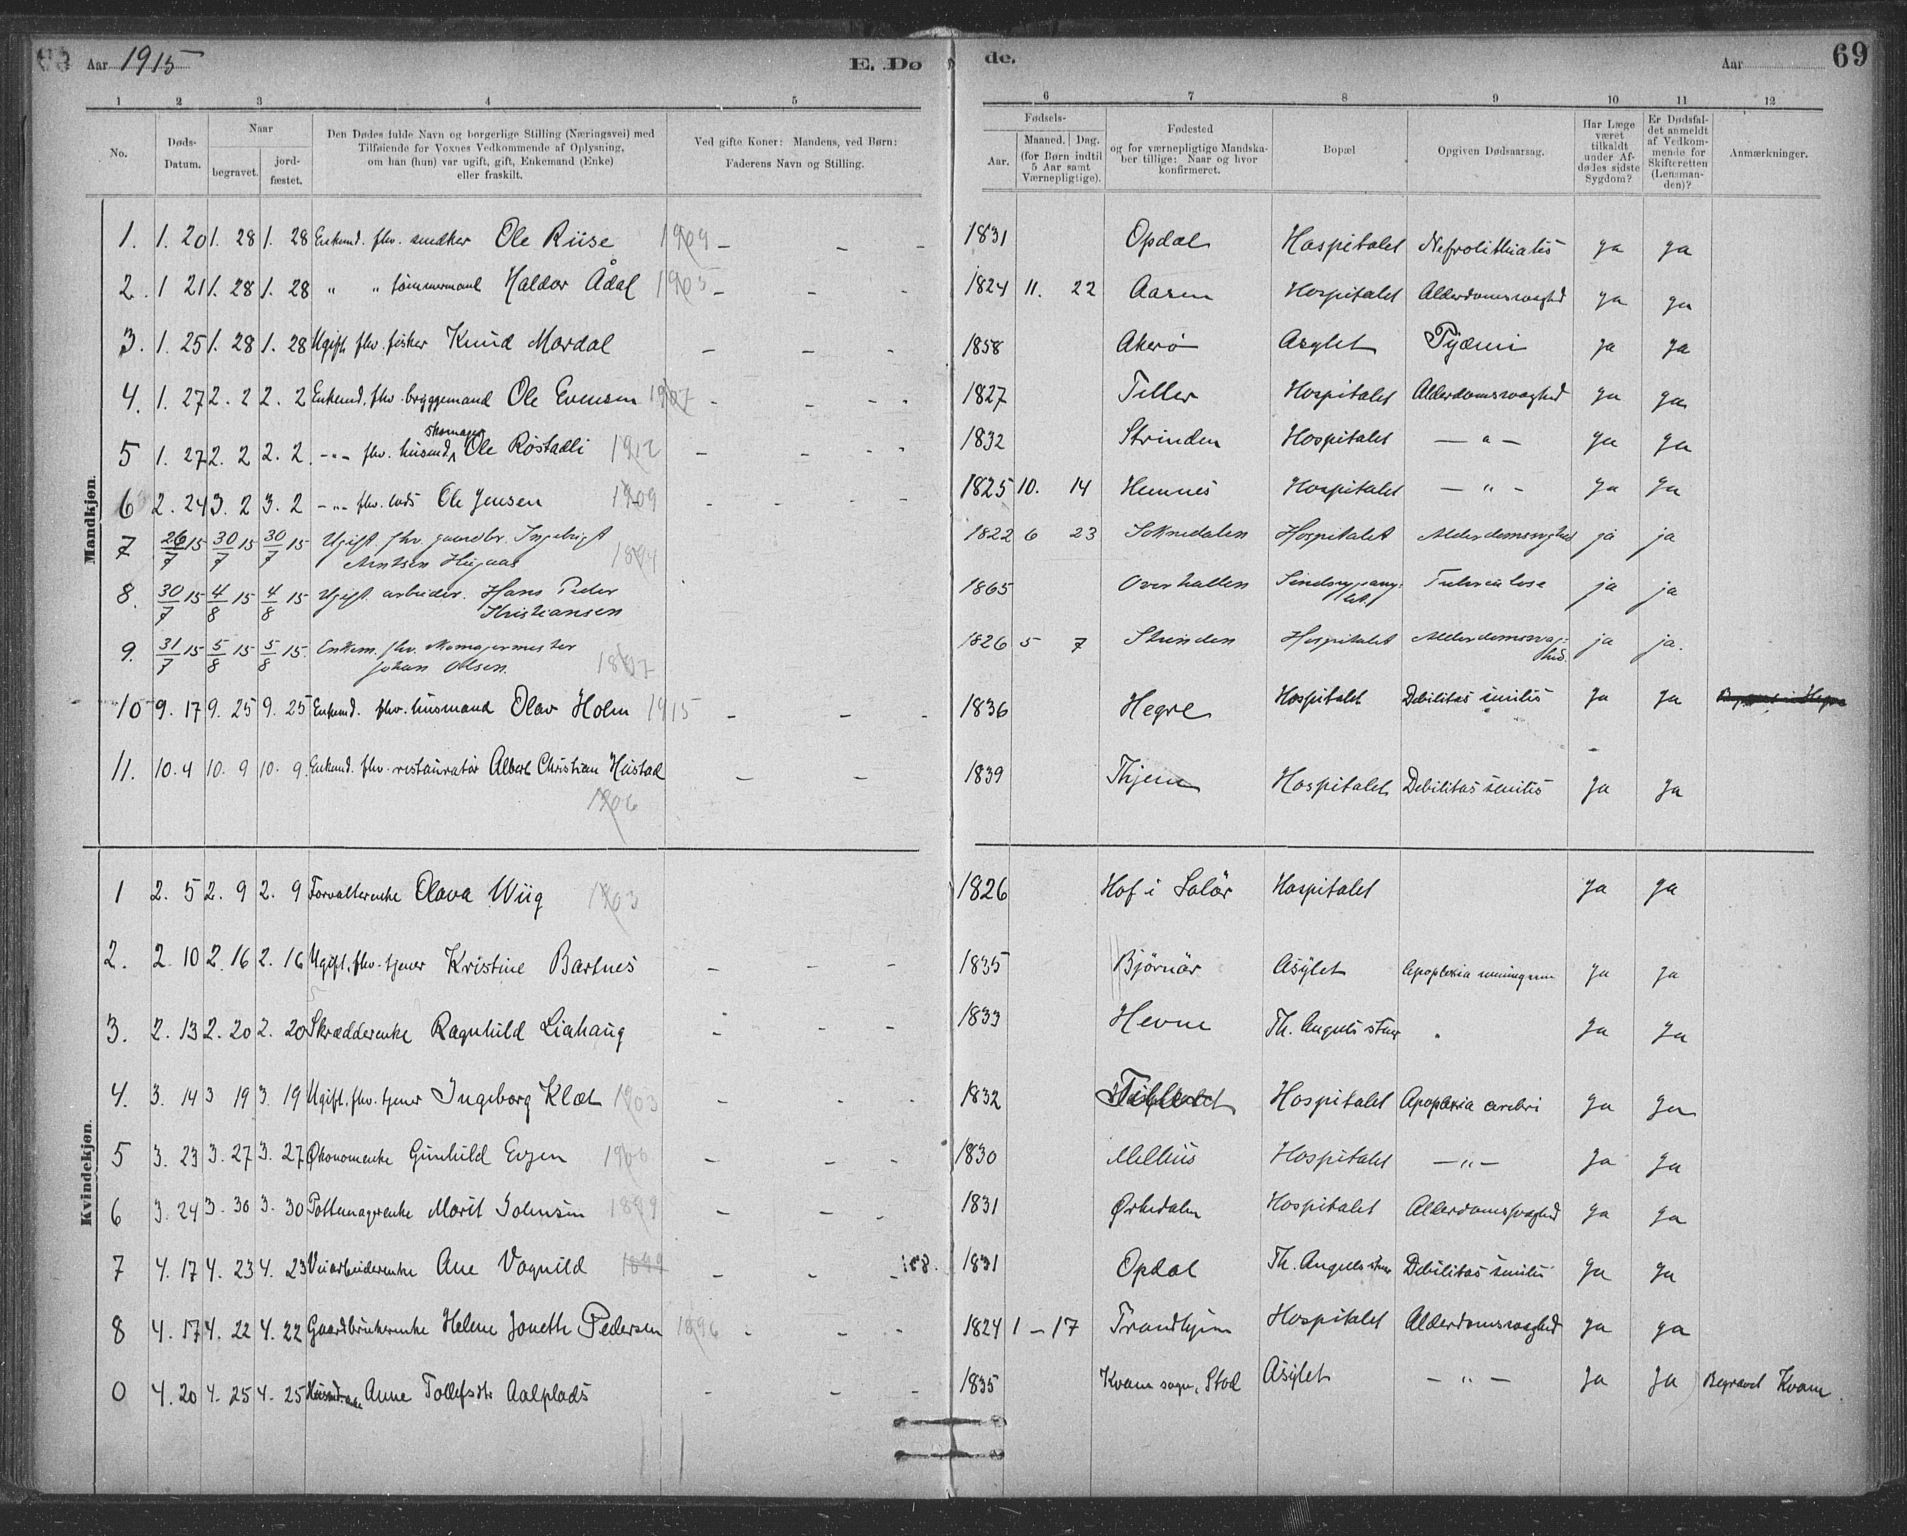 Aar 1915 E. Dø de. Aar 69
1 2 3 4 5 6 7 8 9 10 11 12
No. Døds-Datum. Naar begravet. jord-fæstet. Den Dødes fulde Navn og borgerlige Stilling (Næringsvei) med Tilføiende for Voxnes Vedkommende af Oplysning, om han (hun) var ugift, gift, Enkemand (Enke) eller fraskilt. Ved gifte Koner: Mandens, ved Børn: Faderens Navn og Stilling. Fødsels- Aar. Maaned. Dag. (for Børn indtil 5 Aar samt Værnepligtige). Fødested og for værnepligtige Mandskaber tillige: Naar og hvor konfirmeret. Bopæl. Opgiven Dødsaarsag. Har Læge været tilkaldt under Afdødes sidste Sygdom? Er Dødsfaldet anmeldt af Vedkommende for Skifteretten (Lensmanden)? Anmærkninger.
Mandkjøn.
1. 1. 20 1. 28 1. 28 Enkemd. fhv. snedker Ole Riise 1909 - - - 1831 Opdal Hospitalet Nefrolithiatis ja ja
2. 1 21 1. 28 1. 28 " " tømmermand Haldor Ådal 1905 - - - 1824 11. 22 Aasen Hospitalet Alderdomssvaghed ja ja
3. 1. 25 1. 28 1. 28 Ugift fhv. fisker Knud Mordal - - - 1858 Akerø Asylet Pyæmi ja ja
4. 1. 27 2. 2 2. 2 Enkemd. fhv. bryggemand Ole Evensen 1907 - - - 1827 Tiller Hospitalet Alderdomssvaghed ja ja
5 1. 27 2. 2 2. 2. -"- fhv. husmd skomager Ole Røstadli 1912 - - - 1832 Strinden Hospitalet - " - ja ja
6 2. 24 3. 2 3. 2 -"- fhv. lods Ole Jensen 1909 - - - 1825 10. 14 Hemnes Hospitalet - " - ja ja
7 26/7 15 30/7 15 30/7 15 Ugift fhv. gaardbr. Ingebrigt
Arntsen Haugaas 1894 1822 6 23 Soknedalen Hospitalet Alderdomssvaghed ja ja
8. 30/7 15 4/8 15 4/8 15 Ugift arbeider. Hans Peder
Kristiansen 1865 Overhallen Sindssygeasylet Tuberculose ja ja
9. 31/7 15 5/8 15 5/8 15. Enkem. fhv. skomagermester
Johan Olsen. 1826 5 7 Strinden Hospitalet Alderdomssvaghed. ja ja.
10 9. 17 9. 25 9. 25 Enkemd. fhv. husmand Olav Holm 1915 - - - 1836 Hegre Hospitalet Debilitas senilis ja ja Begravet i Hegre
11. 10. 4 10. 9 10. 9. Enkemd. fhv. restauratør Albert Christian Hustad - - 1839 Thjem Hospitalet Debilitas senilis ja ja
1906
Kvindekjøn.
1 2. 5 2. 9 2. 9 Forvalterenke Olava Wiig 1903 1826 Hof i Solør Hospitalet ja ja
2. 2. 10 2. 16 2. 16 Ugift, fhv. tjener Kristine Bartnes - - - 1835 Bjørnør Asylet Apoplexia ja ja
3. 2. 13 2. 20 2. 20 Skrædderenke Ragnhild Liahaug - - - 1833 Hevne Th. Angells stuer " ja ja
4. 3. 14 3 19 3. 19 Ugift, fhv. tjener Ingeborg Klæt 1903 - - - 1832 Hospitalet Apoplexia cerebri ja ja
5 3. 23 3. 27 3. 27 Økonomenke Gunhild Evjen 1906 - - - 1830 Melhus Hospitalet -"- ja ja
6 3. 24 3. 30 3. 30 Pottemagerenke Marit Johnsen 1899 - - - 1831 Ørkedalen Hospitalet Alderdomssvaghed ja ja
7 4. 17 4. 23 4. 23 Veiarbeiderenke Ane Vognild 1899 - - - 188. 1831 Opdal Th. Angells stuer Debilitas senilis ja ja
8 4. 17 4. 22 4. 22 Gaardbrukerenke Helene Jonette Pedersen 1896 - - - 1824 1 - 17 Trondhjem Hospitalet Alderdomssvaghed ja ja
0 4. 20 4. 25 4. 25 Husmd.enke Anne Tollefsdtr Aalplads - - - 1835 Kvam sogn, Stod Asylet - " - ja ja Begravet Kvam.